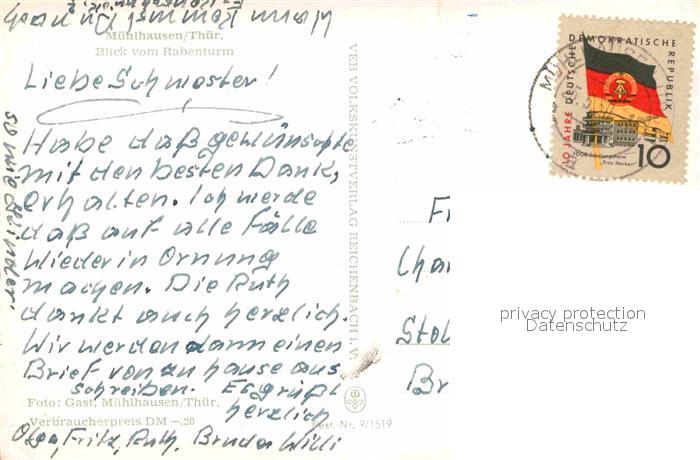 Wann kommst Du nach
Mühlhausen/Thür.
Blick vom Rabenturm
Liebe Schwester!
Habe daß gewünschte
mit den besten Dank,
erhalten. Ich werde
daß auf alle Fälle
wieder in Ornung
machen. Die Ruth
dankt auch herzlich.
Wir werden dann einen
Brief von zu hause aus
schreiben. Es grüßt
herzlich
Foto: Gast, Mühlhausen/Thür.
Verbraucherpreis DM –.20
Olga, Fritz, Ruth, Bruder Willi
so wie Kinder
VEB VOLKSKUNSTVERLAG REICHENBACH I. V.
Best.-Nr. 9/1519
10 JAHRE DEUTSCHE DEMOKRATISCHE REPUBLIK
"Fritz Heckert"
10
Fr
Char
Stol
Br
privacy protection
Datenschutz